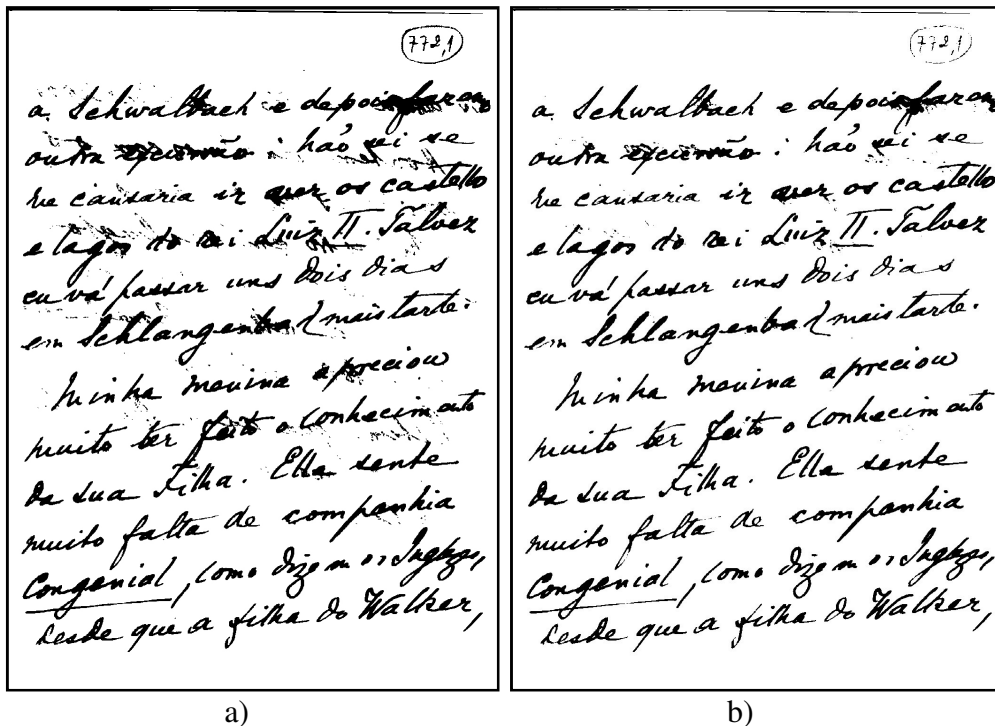 772,1
a Schwalbach e depois faremos
outra excursão: não sei se
lhe cansaria ir ver os castello
e lagos do rei Luiz II. Talvez
eu vá passar uns dois dias
em Schlangenbad mais tarde.
Minha menina apreciou
muito ter feito o conhecimento
da sua Filha. Ella sente
muito falta de companhia
congenial, como dizem os Inglezes,
desde que a filha do Walker,
a)
772,1
a Schwalbach e depois faremos
outra excursão: não sei se
lhe cansaria ir ver os castello
e lagos do rei Luiz II. Talvez
eu vá passar uns dois dias
em Schlangenbad mais tarde.
Minha menina apreciou
muito ter feito o conhecimento
da sua Filha. Ella sente
muito falta de companhia
congenial, como dizem os Inglezes,
desde que a filha do Walker,
b)